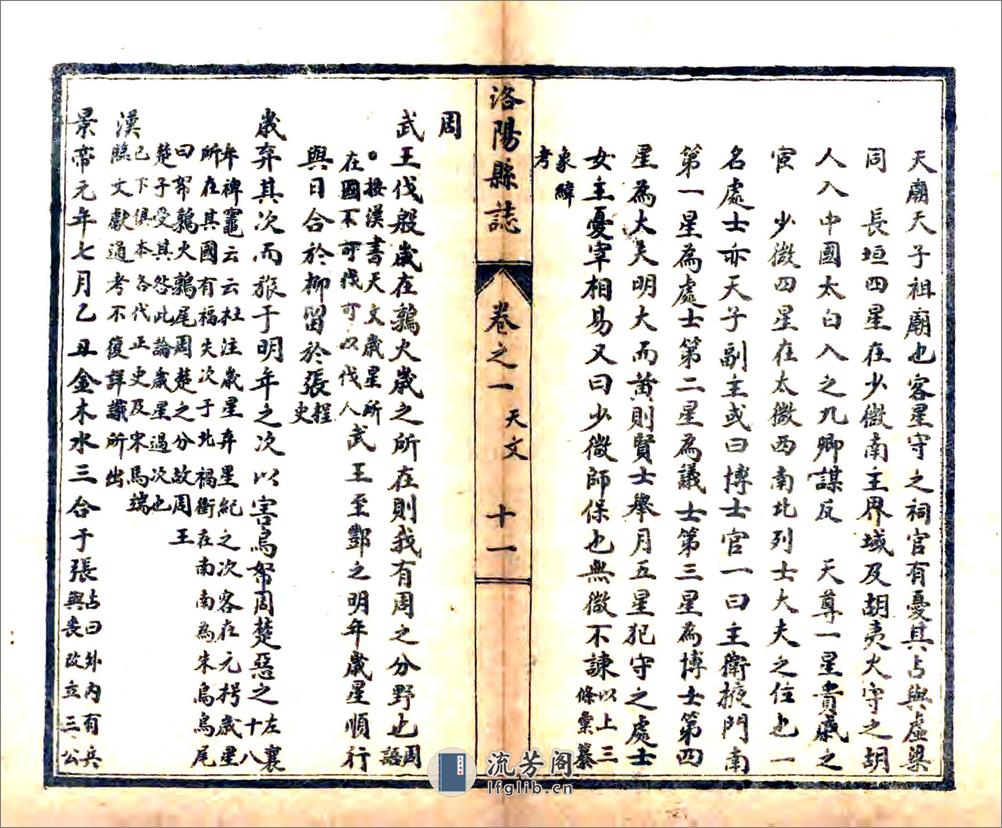 天廟天子祖廟也客星守之祠官有憂其占與虛梁
同　長垣四星在少微南主界域及胡夷火守之胡
人入中國太白入之九卿謀反　天尊一星貴戚之
宦　少微四星在太微西南北列士大夫之位也一
名處士亦天子副主或曰博士官一曰主衛掖門南
第一星為處士第二星為議士第三星為博士第四
星為大夫明大而黄則賢士舉月五星犯守之處士
女主憂宰相易又曰少微師保也無微不諫以上三
條彙纂
象緯
考
洛陽縣誌
卷之一
天文
十一
周
武王伐殷歲在鶉火歲之所在則我有周之分野也周
語
○按漢書天文歲星所
在國不可伐可以伐人武王至酆之明年歲星順行
與日合於柳留於張程
史
歲弃其次而旅于明年之次以害鳥帑周楚惡之左襄
十八
年裨竈云云杜注歲星弃星紀之次客在元枵歲星
所在其國有福失次于北禍衝在南南為朱鳥鳥尾
曰帑鶉火鶉尾周楚之分故周王
楚子受其咎此論歲星過次也
漢
已下俱本各代正史及宋馬端
臨文獻通考不復詳識所出
景帝元年七月乙丑金木水三合于張占曰外内有兵
與喪改立三公
流芳阁
lfglib.cn